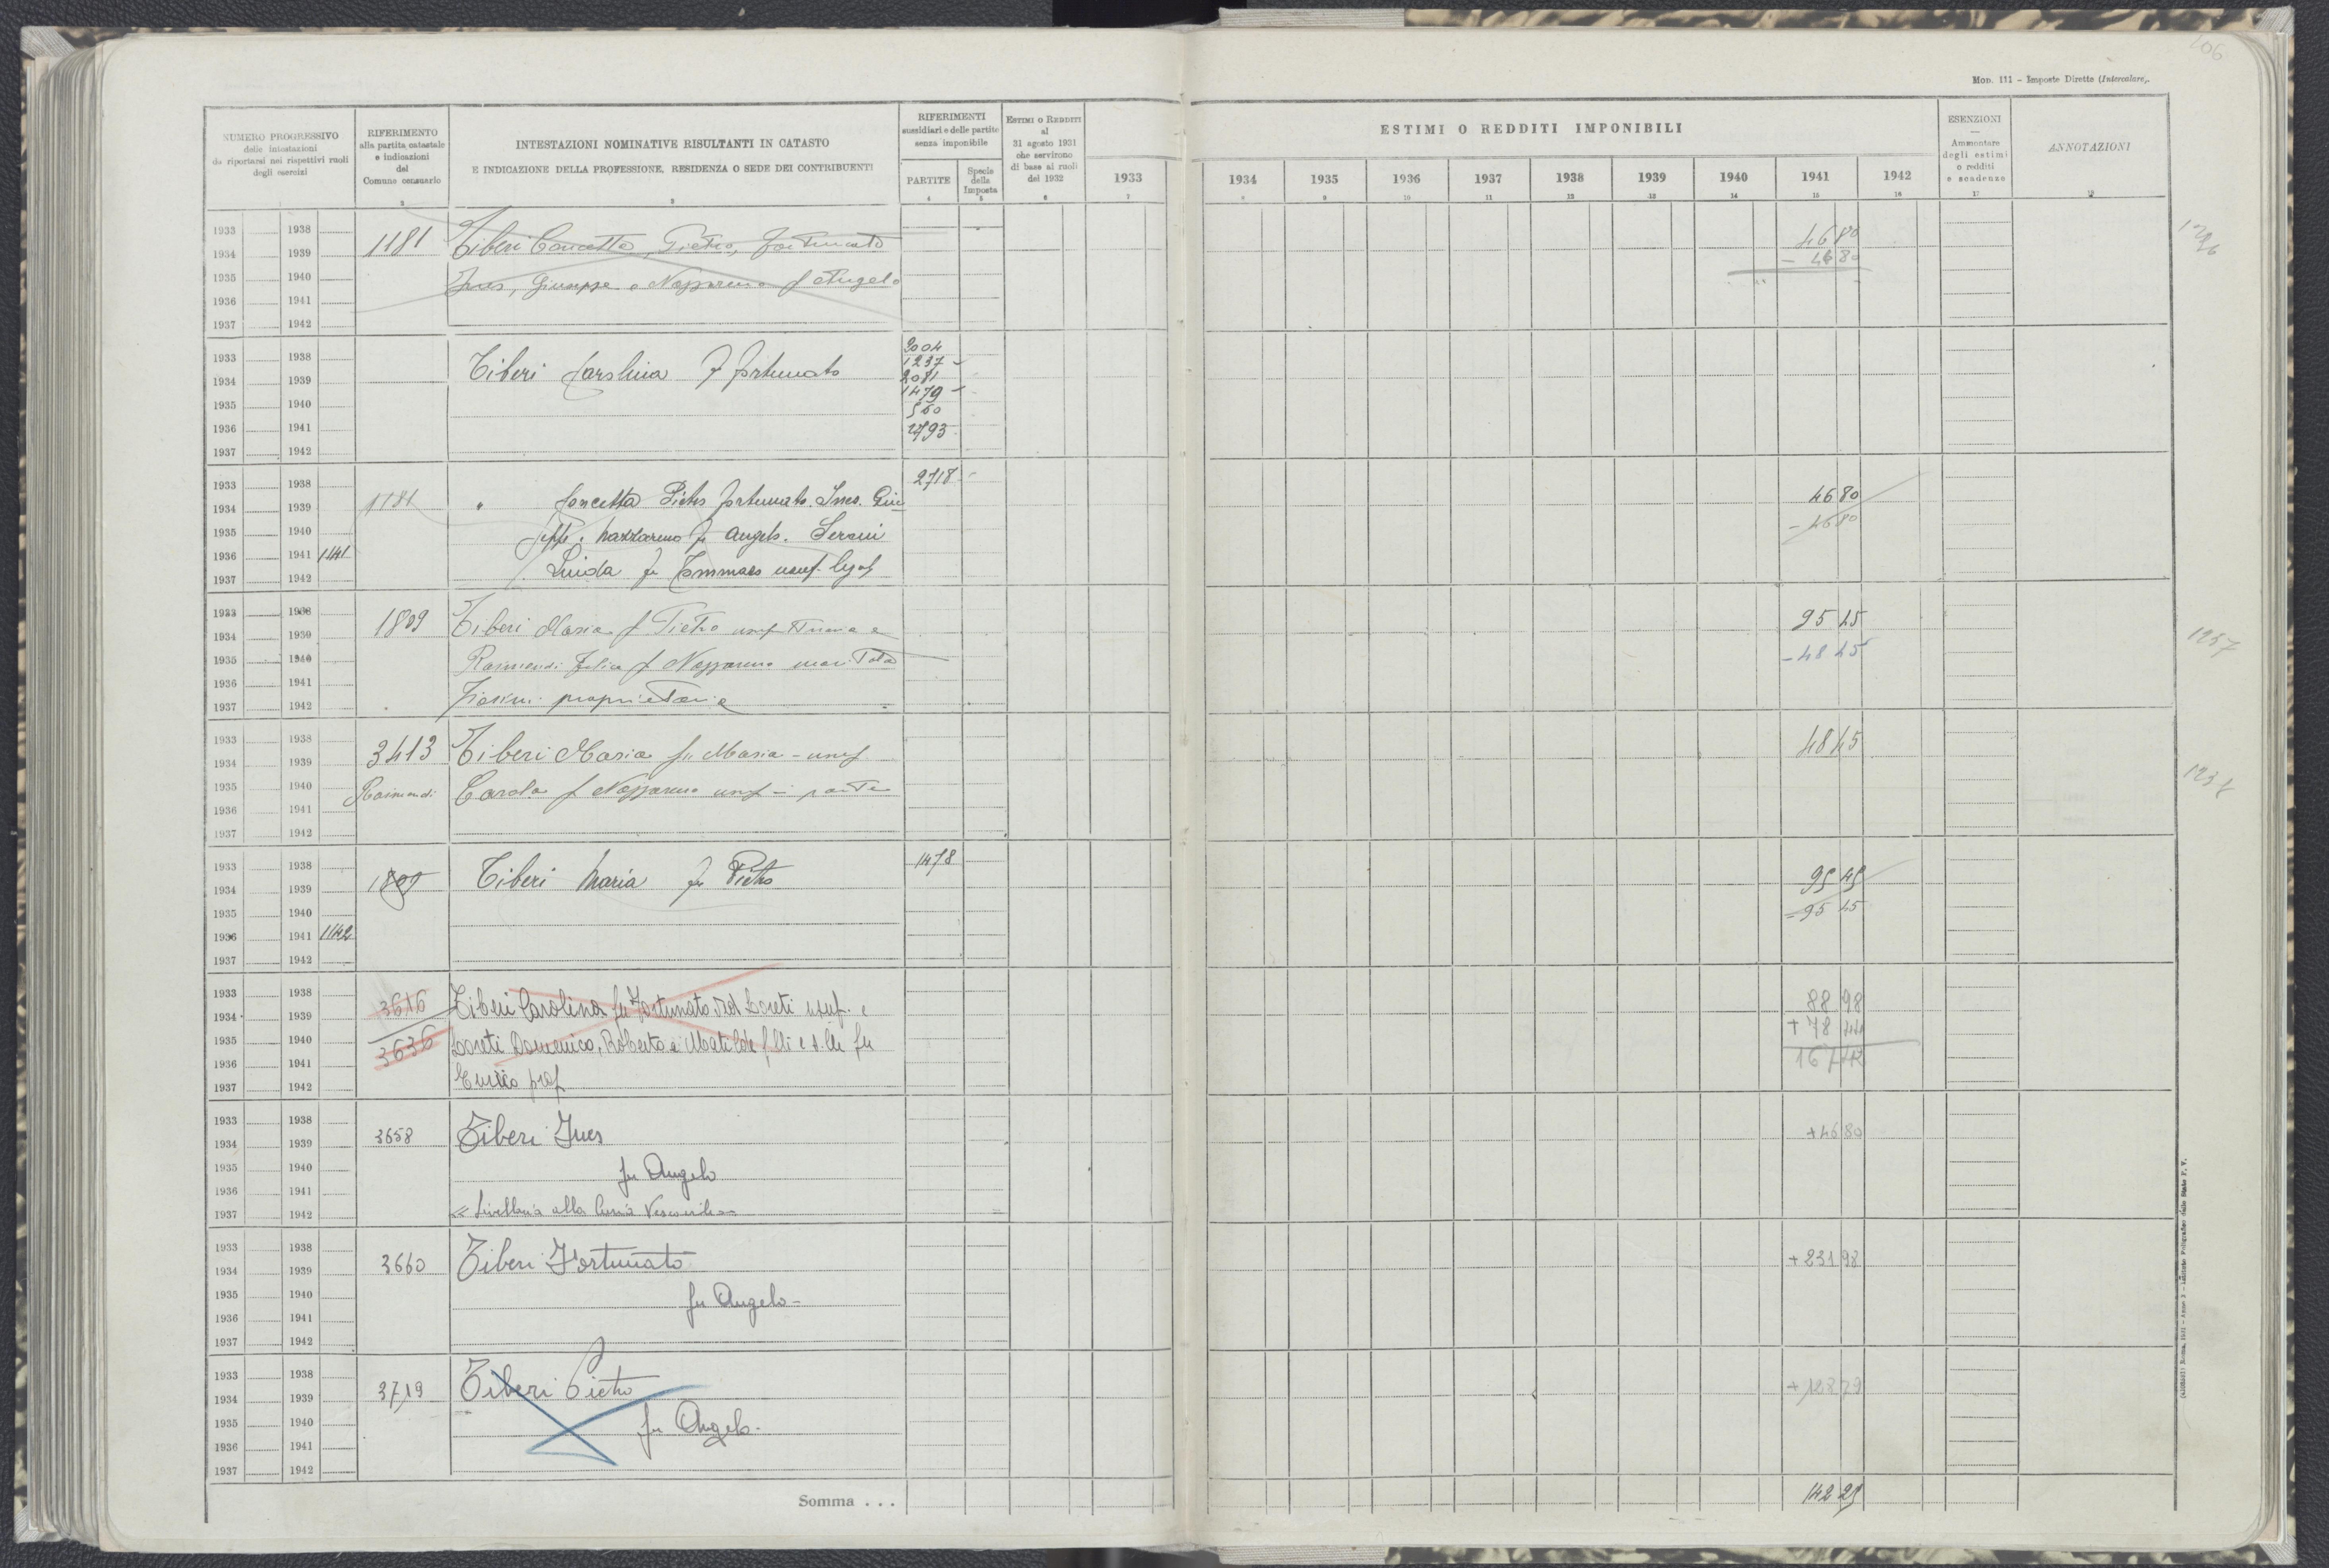 106
Mon. 111 - Imposte Dirette (Intercalare).
NUMERO PROGRESSIVO
delle intestazioni
da riportarsi nei rispettivi ruoli
degli esercizi
RIFERIMENTO
alla partita catastale
e indicazioni
del
Comune censuario
2
INTESTAZIONI NOMINATIVE RISULTANTI IN CATASTO
E INDICAZIONE DELLA PROFESSIONE, RESIDENZA O SEDE DEI CONTRIBUENTI
3
RIFERIMENTI
sussidiari e delle partite
senza imponibile
PARTITE
4
Specie
della
Imposta
5
ESTIMI O REDDITI
al
31 agosto 1931
che servirono
di base ai ruoli
del 1932
6
ESTIMI O REDDITI IMPONIBILI
1933 1934 1935 1936 1937 1938 1939 1940 1941 1942
7 8 9 10 11 12 13 14 15 16
ESENZIONI
—
Ammontare
degli estimi
o redditi
e scadenze
17
ANNOTAZIONI
18
1933 1938
1934 1939
1935 1940
1936 1941
1937 1942
1181
Tiberi Concetta, Pietro, Fortunato
Ines, Giuseppe e Nazzareno f Angelo
46 80
- 46 80
1933 1938
1934 1939
1935 1940
1936 1941
1937 1942
Tiberi Carolina f Fortunato
3004
1237 -
2081
1479 -
560
2793
1933 1938
1934 1939
1935 1940
1936 1941 1141
1937 1942
1181
" Concetta Pietro Fortunato. Ines. Giu
seppe. Nazzareno fu Angelo. Serani
Linda fu Tommaso usuf. legale
2718 -
46 80
- 46 80
1933 1938
1934 1939
1935 1940
1936 1941
1937 1942
1809
Tiberi Maria f Pietro
Raimondi Felice f Nazzareno maritata
proprietaria
95 45
- 48 45
1257
1933 1938
1934 1939
1935 1940
1936 1941
1937 1942
3413
Raimondi
Tiberi Maria fu Maria - usuf
Carola f Nazzareno usuf - parte
48 45
1933 1938
1934 1939
1935 1940
1936 1941 1142
1937 1942
1809
Tiberi Maria fu Pietro
1478
95 45
- 95 45
1933 1938
1934 1939
1935 1940
1936 1941
1937 1942
3616
3636
Tiberi Carolina fu Fortunato ved Loreti usuf. e
Loreti Domenico, Roberto e Matilde f.lli e s.lle fu
Enrico prop
88 98
+ 78 44
167 42
1933 1938
1934 1939
1935 1940
1936 1941
1937 1942
3658
Tiberi Ines
fu Angelo
" Livellaria alla Curia Vescovile "
+ 46 80
1933 1938
1934 1939
1935 1940
1936 1941
1937 1942
3660
Tiberi Fortunato
fu Angelo -
+ 231 98
1933 1938
1934 1939
1935 1940
1936 1941
1937 1942
3719
Tiberi Pietro
fu Angelo -
+ 128 79
Somma . . .
142 25